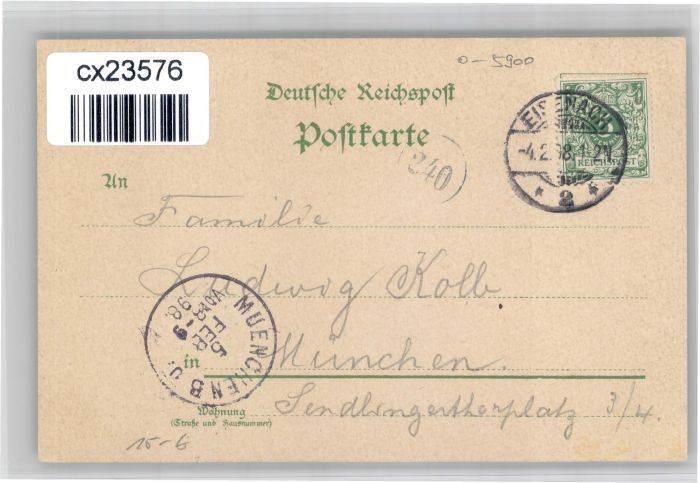 cx23576
0-5900
Deutsche Reichspost
Postkarte
EISENACH
-4.2.98.1-2N.
* 2 *
REICHSPOST
240
An
Familie
Ludwig Kolb
MUENCHEN B
5 FEB
VOR 8-9
98.
in München.
Wohnung
(Straße und Hausnummer)
Sendlingerthorplatz 3/4.
15-6